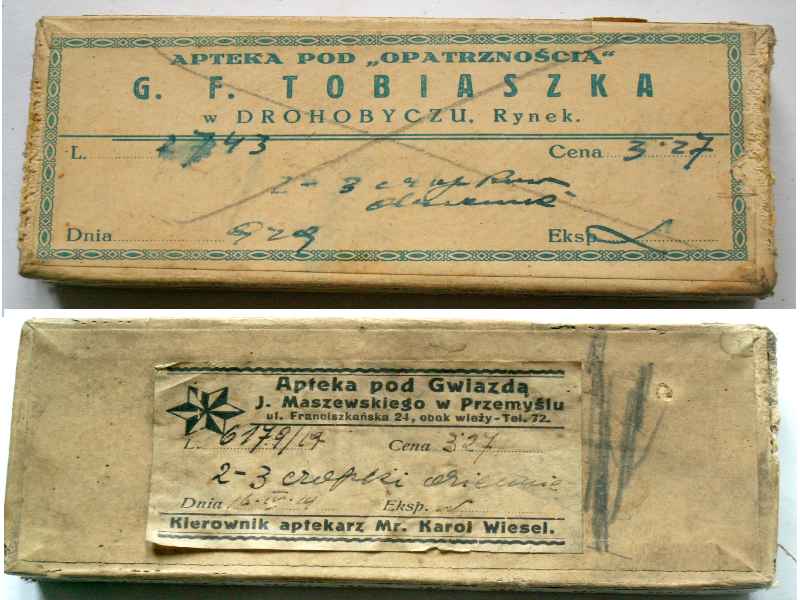 APTEKA POD „OPATRZNOŚCIĄ“
G. F. TOBIASZKA
w DROHOBYCZU, Rynek.
L. 2743 Cena 3·27
2-3 czopków
dziennie
Dnia Eksp.
Apteka pod Gwiazdą
J. Maszewskiego w Przemyślu
ul. Franciszkańska 24, obok wieży-Tel. 72.
L. 6179/19 Cena 3·27
2-3 czopki dziennie
Dnia Eksp.
Kierownik aptekarz Mr. Karol Wiesel.